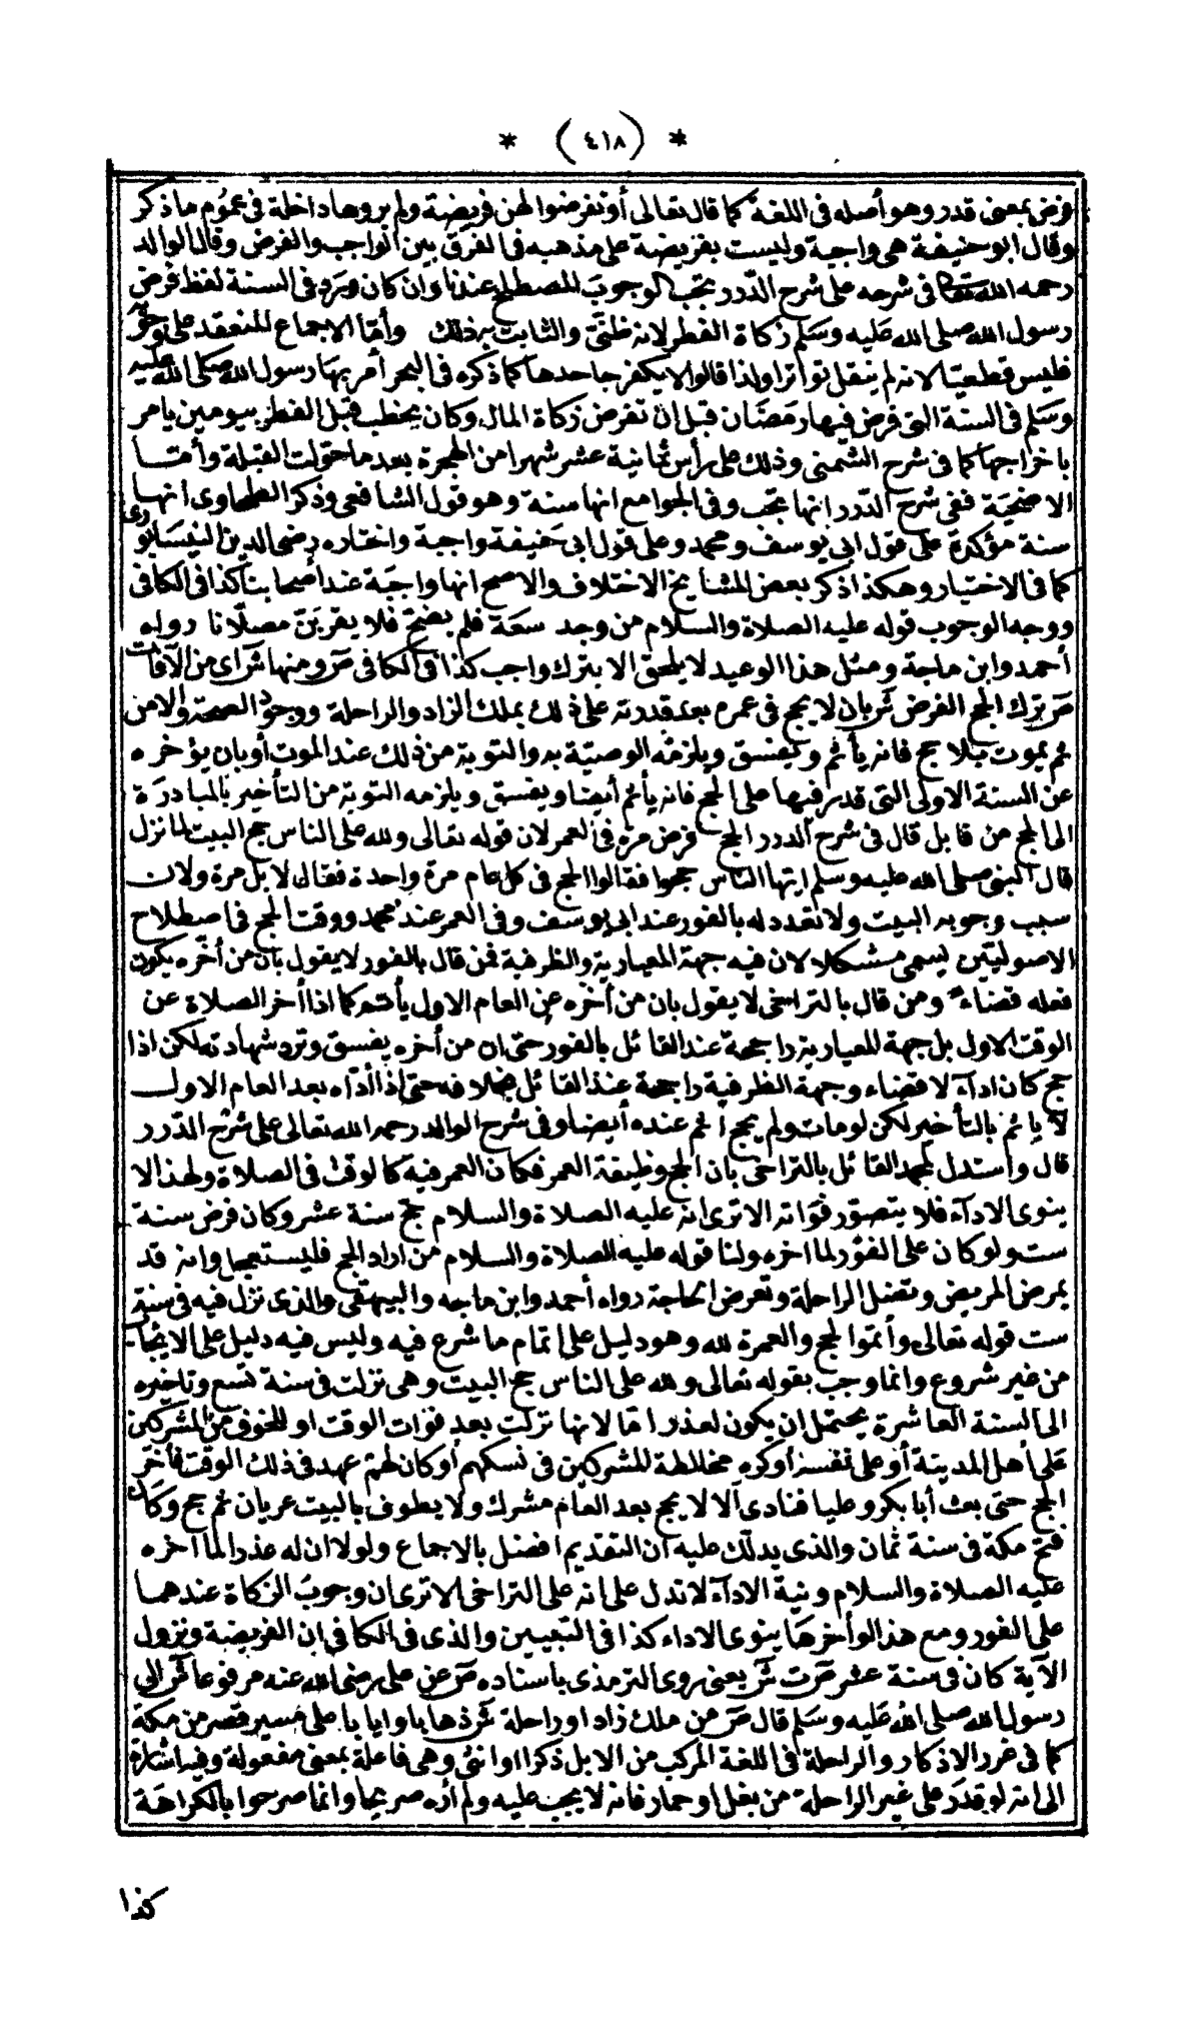 * (٤١٨) *
فرض بمعنى قدر وهو أصله فى اللغة كما قال تعالى أو تفرضوا لهن فريضة ولم يروها داخلة فى عموم ما ذكر
وقال ابو حنيفة هى واجبة وليست بفريضة على مذهبه فى الفرق بين الواجب والفرض وقال الوالد
رحمه الله تعالى فى شرحه على شرح الدّرر تجب الوجوب المصطلح عندنا وان كان ورد فى السنة لفظ فرض
رسول الله صلى الله عليه وسلم زكاة الفطر لانه ظنىّ والثابت به ذلك وأمّا الاجماع المنعقد على وجو
فليس قطعيّا لانه لم ينقل تواترا ولذا قالوا لا يكفر جاحدها كما ذكره فى البحر أمر بها رسول الله صلى الله عليه
وسلم فى السنة التى فرض فيها رمضان قبل ان تفرض زكاة المال وكان يخطب قبل الفطر بيومين يامر
باخراجها كما فى شرح الشمنى وذلك على رأس ثمانية عشر شهرا من الهجرة بعد ما حوّلت القبلة وأمّا
الاضحيّة ففى شرح الدّرر انها تجب وفى الجوامع انها سنة وهو قول الشافعى وذكر الطحاوى انها
سنة مؤكدة على قول ابى يوسف ومحمد وعلى قول ابى حنيفة واجبة واختاره رضى الدين النيسابورى
كما فى الاختيار وهكذا ذكر بعض المشايخ الاختلاف والاصح انها واجبة عند أصحابنا كذا فى الكافى
ووجه الوجوب قوله عليه الصلاة والسلام من وجد سعة فلم يضحّ فلا يقربنّ مصلّانا رواه
أحمد وابن ماجة ومثل هذا الوعيد لا يلحق الا بترك واجب كذا فى الكافى ص ومنها ش اى من الآفات
ص ترك الحج الفرض ش بان لا يحج فى عمره بعد قدرته على ذلك بملك الزاد والراحلة ووجود الصحة والامن
ثم يموت بلا حج فانه يأثم ويفسق ويلزمه الوصيّة به والتوبة من ذلك عند الموت أو بان يؤخره
عن السنة الاولى التى قدر فيها على الحج فانه يأثم أيضا ويفسق ويلزمه التوبة من التأخير بالمبادرة
الى الحج من قابل قال فى شرح الدرر الحج فرض مرة فى العمر لان قوله تعالى ولله على الناس حج البيت لما نزل
قال النبى صلى الله عليه وسلم ايها الناس حجوا فقالوا الحج فى كل عام مرة واحدة فقال لا بل مرة ولان
سبب وجوبه البيت ولا تعدد له بالفور عند ابى يوسف وفى العمر عند محمد ووقت الحج فى اصطلاح
الاصوليّين يسمى مشكلا لان فيه جهة المعيارية والظرفية فمن قال بالفور لا يقول بان من أخّره يكون
فعله قضاء ومن قال بالتراخى لا يقول بان من أخره عن العام الاول يأثم كما اذا أخر الصلاة عن
الوقت الاول بل جهة المعيارية راجحة عند القائل بالفور حتى ان من أخره يفسق وترد شهادته لكن اذا
حج كان اداء لا قضاء وجهة الظرفية راجحة عند القائل بخلافه حتى اذا أدّاه بعد العام الاول
لا ياثم بالتأخير لكن لو مات ولم يحج أثم عنده أيضا وفى شرح الوالد رحمه الله تعالى على شرح الدّرر
قال واستدل لمحمد القائل بالتراخى بان الحج وظيفة العمر فكان العمر فيه كالوقت فى الصلاة ولهذا لا
ينوى الاداء فلا يتصوّر فواته الا ترى انه عليه الصلاة والسلام حج سنة عشر وكان فرض سنة
ست ولو كان على الفور لما اخره ولنا قوله عليه الصلاة والسلام من اراد الحج فليستعجل وانه قد
يمرض المريض وتضل الراحلة وتعرض الحاجة رواه أحمد وابن ماجه والبيهقى والذى نزل فيه فى سنة
ست قوله تعالى وأتموا الحج والعمرة لله وهو دليل على اتمام ما شرع فيه وليس فيه دليل على الايجاب
من غير شروع وانما وجب بقوله تعالى ولله على الناس حج البيت وهى نزلت فى سنة تسع وتاخيره
الى السنة العاشرة يحتمل ان يكون لعذر امّا لانها نزلت بعد فوات الوقت او للخوف من المشركين
على أهل المدينة أو على نفسه أو كره مخالطة المشركين فى نسكهم أو كان لهم عهد فى ذلك الوقت فأخّر
الحج حتى بعث أبا بكر وعليا فنادى ألا لا يحج بعد العام مشرك ولا يطوف بالبيت عريان ثم حج وكان
فتح مكة فى سنة ثمان والذى يدلّك عليه ان التقديم افضل بالاجماع ولولا ان له عذرا لما اخره
عليه الصلاة والسلام ونية الاداء لا تدل على انه على التراخى الا ترى ان وجوب الزكاة عندهما
على الفور ومع هذا لو أخرها ينوى الاداء كذا فى التبيين والذى فى الكافى ان الفريضة ونزول
الآية كان فى سنة عشر ص ت ش يعنى روى الترمذى باسناده ص عن على رضى الله عنه مرفوعا ش الى
رسول الله صلى الله عليه وسلم قال ص من ملك زادا وراحلة ش ذهابا وايابا على مسير قصر من مكة
كما فى غرر الاذكار والراحلة فى اللغة المركب من الابل ذكرا او انثى وهى فاعلة بمعنى مفعولة وفيه اشارة
الى انه لو قدر على غير الراحلة من بغل او حمار فانه لا يجب عليه ولم أره صريحا وانما صرحوا بالكراهة
كذا